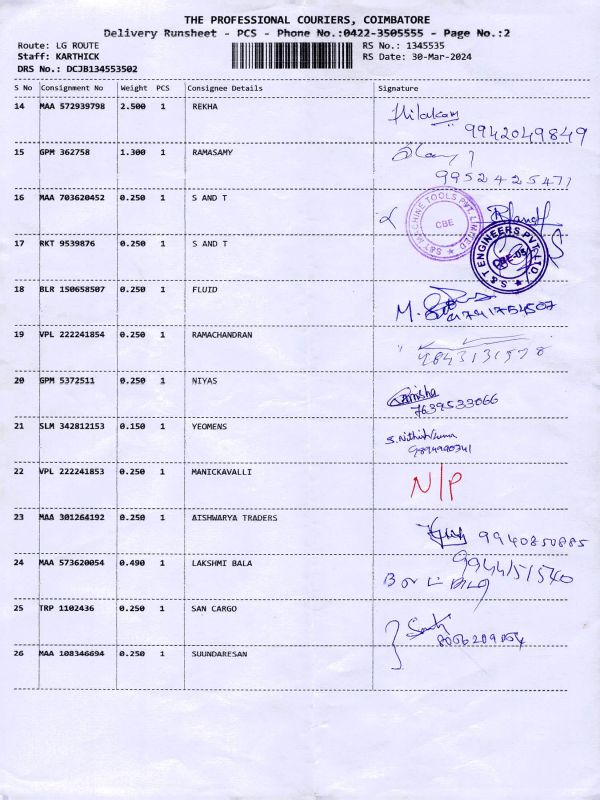 THE PROFESSIONAL COURIERS, COIMBATORE
Delivery Runsheet - PCS - Phone No.:0422-3505555 - Page No.:2
Route: LG ROUTE RS No.: 1345535
Staff: KARTHICK RS Date: 30-Mar-2024
DRS No.: DCJB134553502
S No Consignment No Weight PCS Consignee Details Signature
14 MAA 572939798 2.500 1 REKHA
9942049849
15 GPM 362758 1.300 1 RAMASAMY
9952425471
16 MAA 703620452 0.250 1 S AND T
S&T MACHINE TOOLS PVT. LIMITED CBE
17 RKT 9539876 0.250 1 S AND T
S & T ENGINEERS PVT. LTD. CBE-05
18 BLR 150658507 0.250 1 FLUID
M.
19 VPL 222241854 0.250 1 RAMACHANDRAN
20 GPM 5372511 0.250 1 NIYAS
7639533066
21 SLM 342812153 0.150 1 YEOMENS
S.Nithishkumar
9894990341
22 VPL 222241853 0.250 1 MANICKAVALLI N/P
23 MAA 301264192 0.250 1 AISHWARYA TRADERS
9940850885
24 MAA 573620054 0.490 1 LAKSHMI BALA
9944151540
25 TRP 1102436 0.250 1 SAN CARGO
26 MAA 108346694 0.250 1 SUUNDARESAN